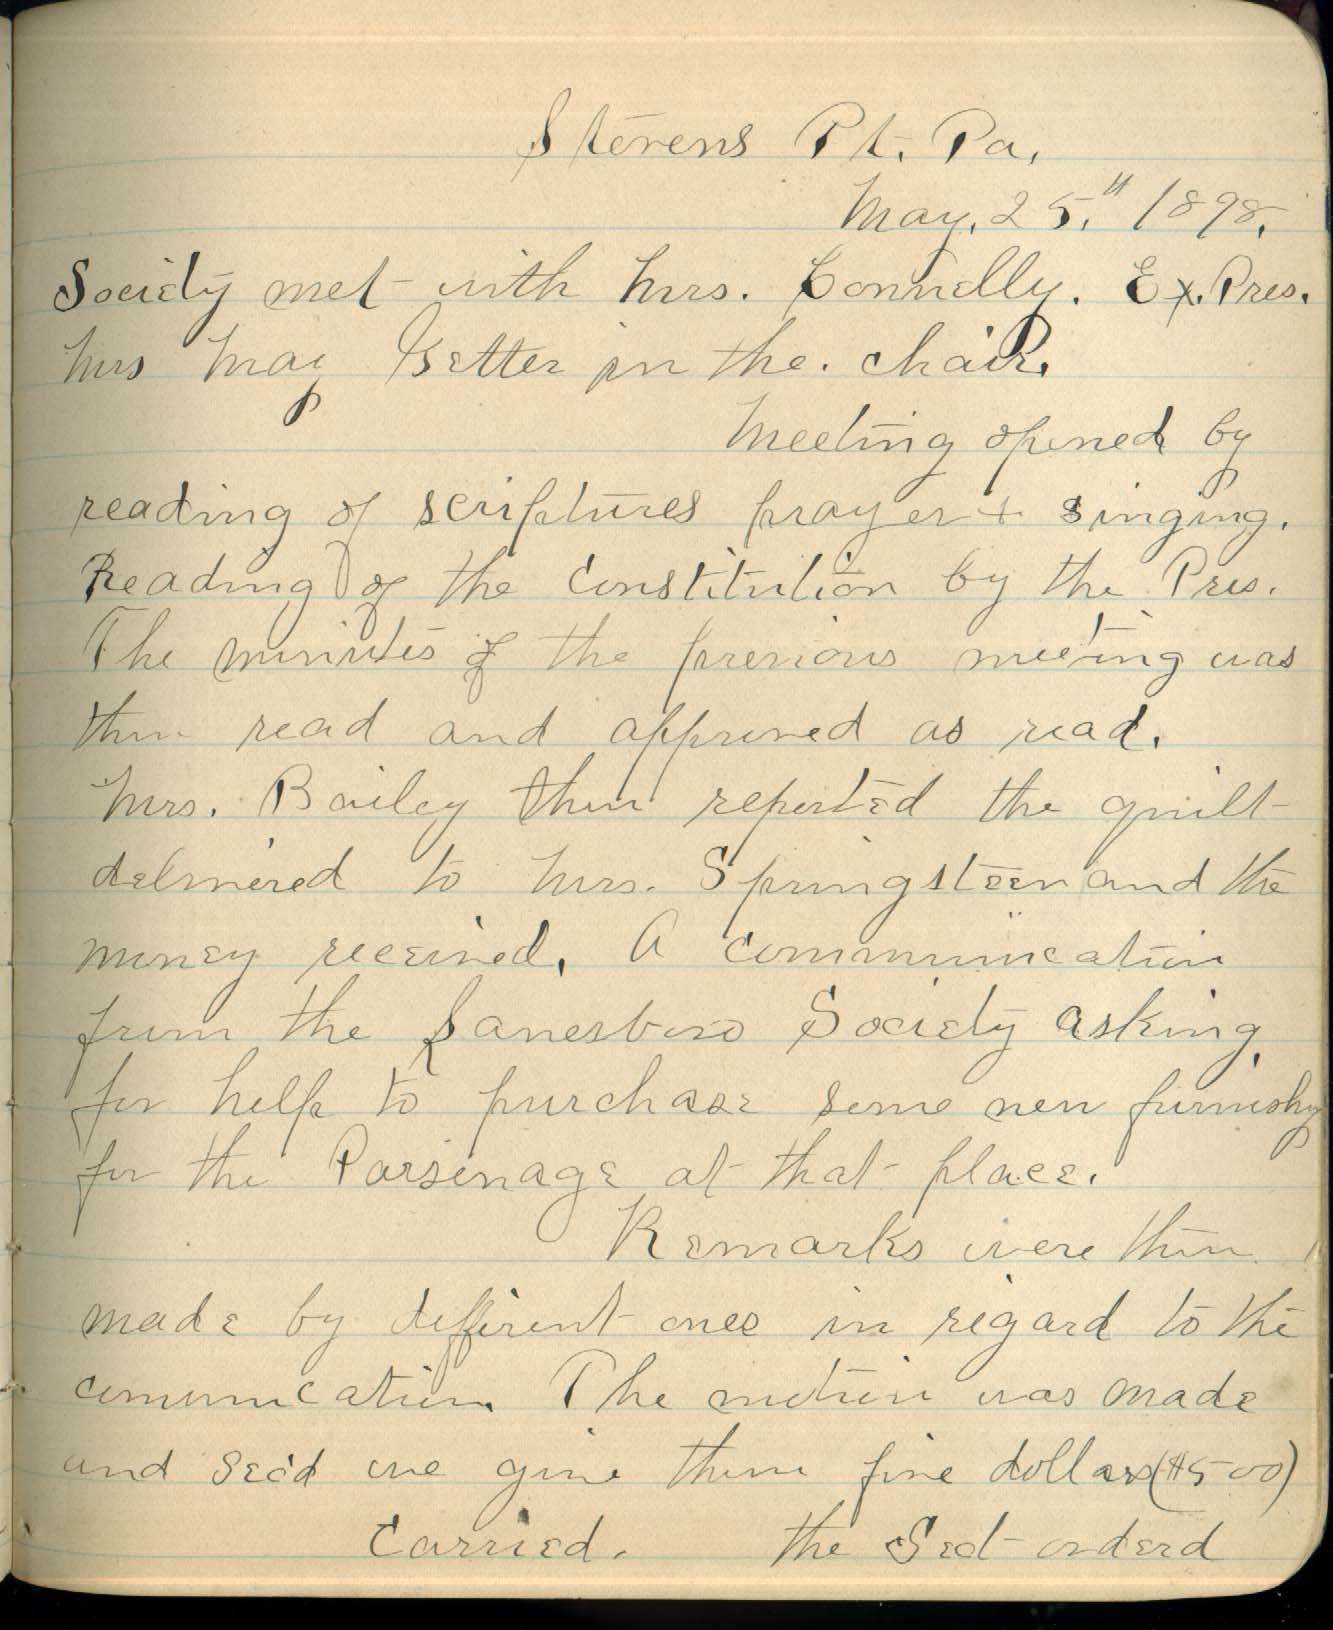 Stevens Pt. Pa.
May. 25." 1898.
Society met with Mrs. Connelly. Ex. Pres.
Mrs May Better in the. chair.
Meeting opened by
reading of scriptures prayer + singing.
Reading of the Constitution by the Pres.
The minutes of the previous meeting was
then read and approved as read.
Mrs. Bailey then reported the quilt
delivered to Mrs. Springsteen and the
money received. A communication
from the Lanesboro Society asking
for help to purchase some new furnishg
for the Parsonage at that place.
Remarks were then
made by different ones in regard to the
comunication. The motion was made
and sec'd we give them five dollars ($5 00)
Carried. the Sect orderd